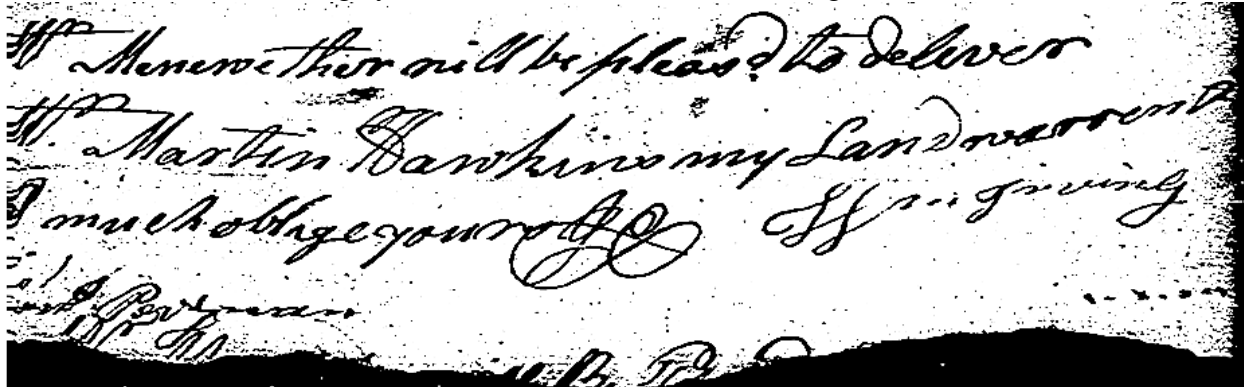 Mr Merewether will be pleasd to deliver
Mr. Martin Hawkins my Land warrent
& much oblige yours &c Wm Irving
Perlman